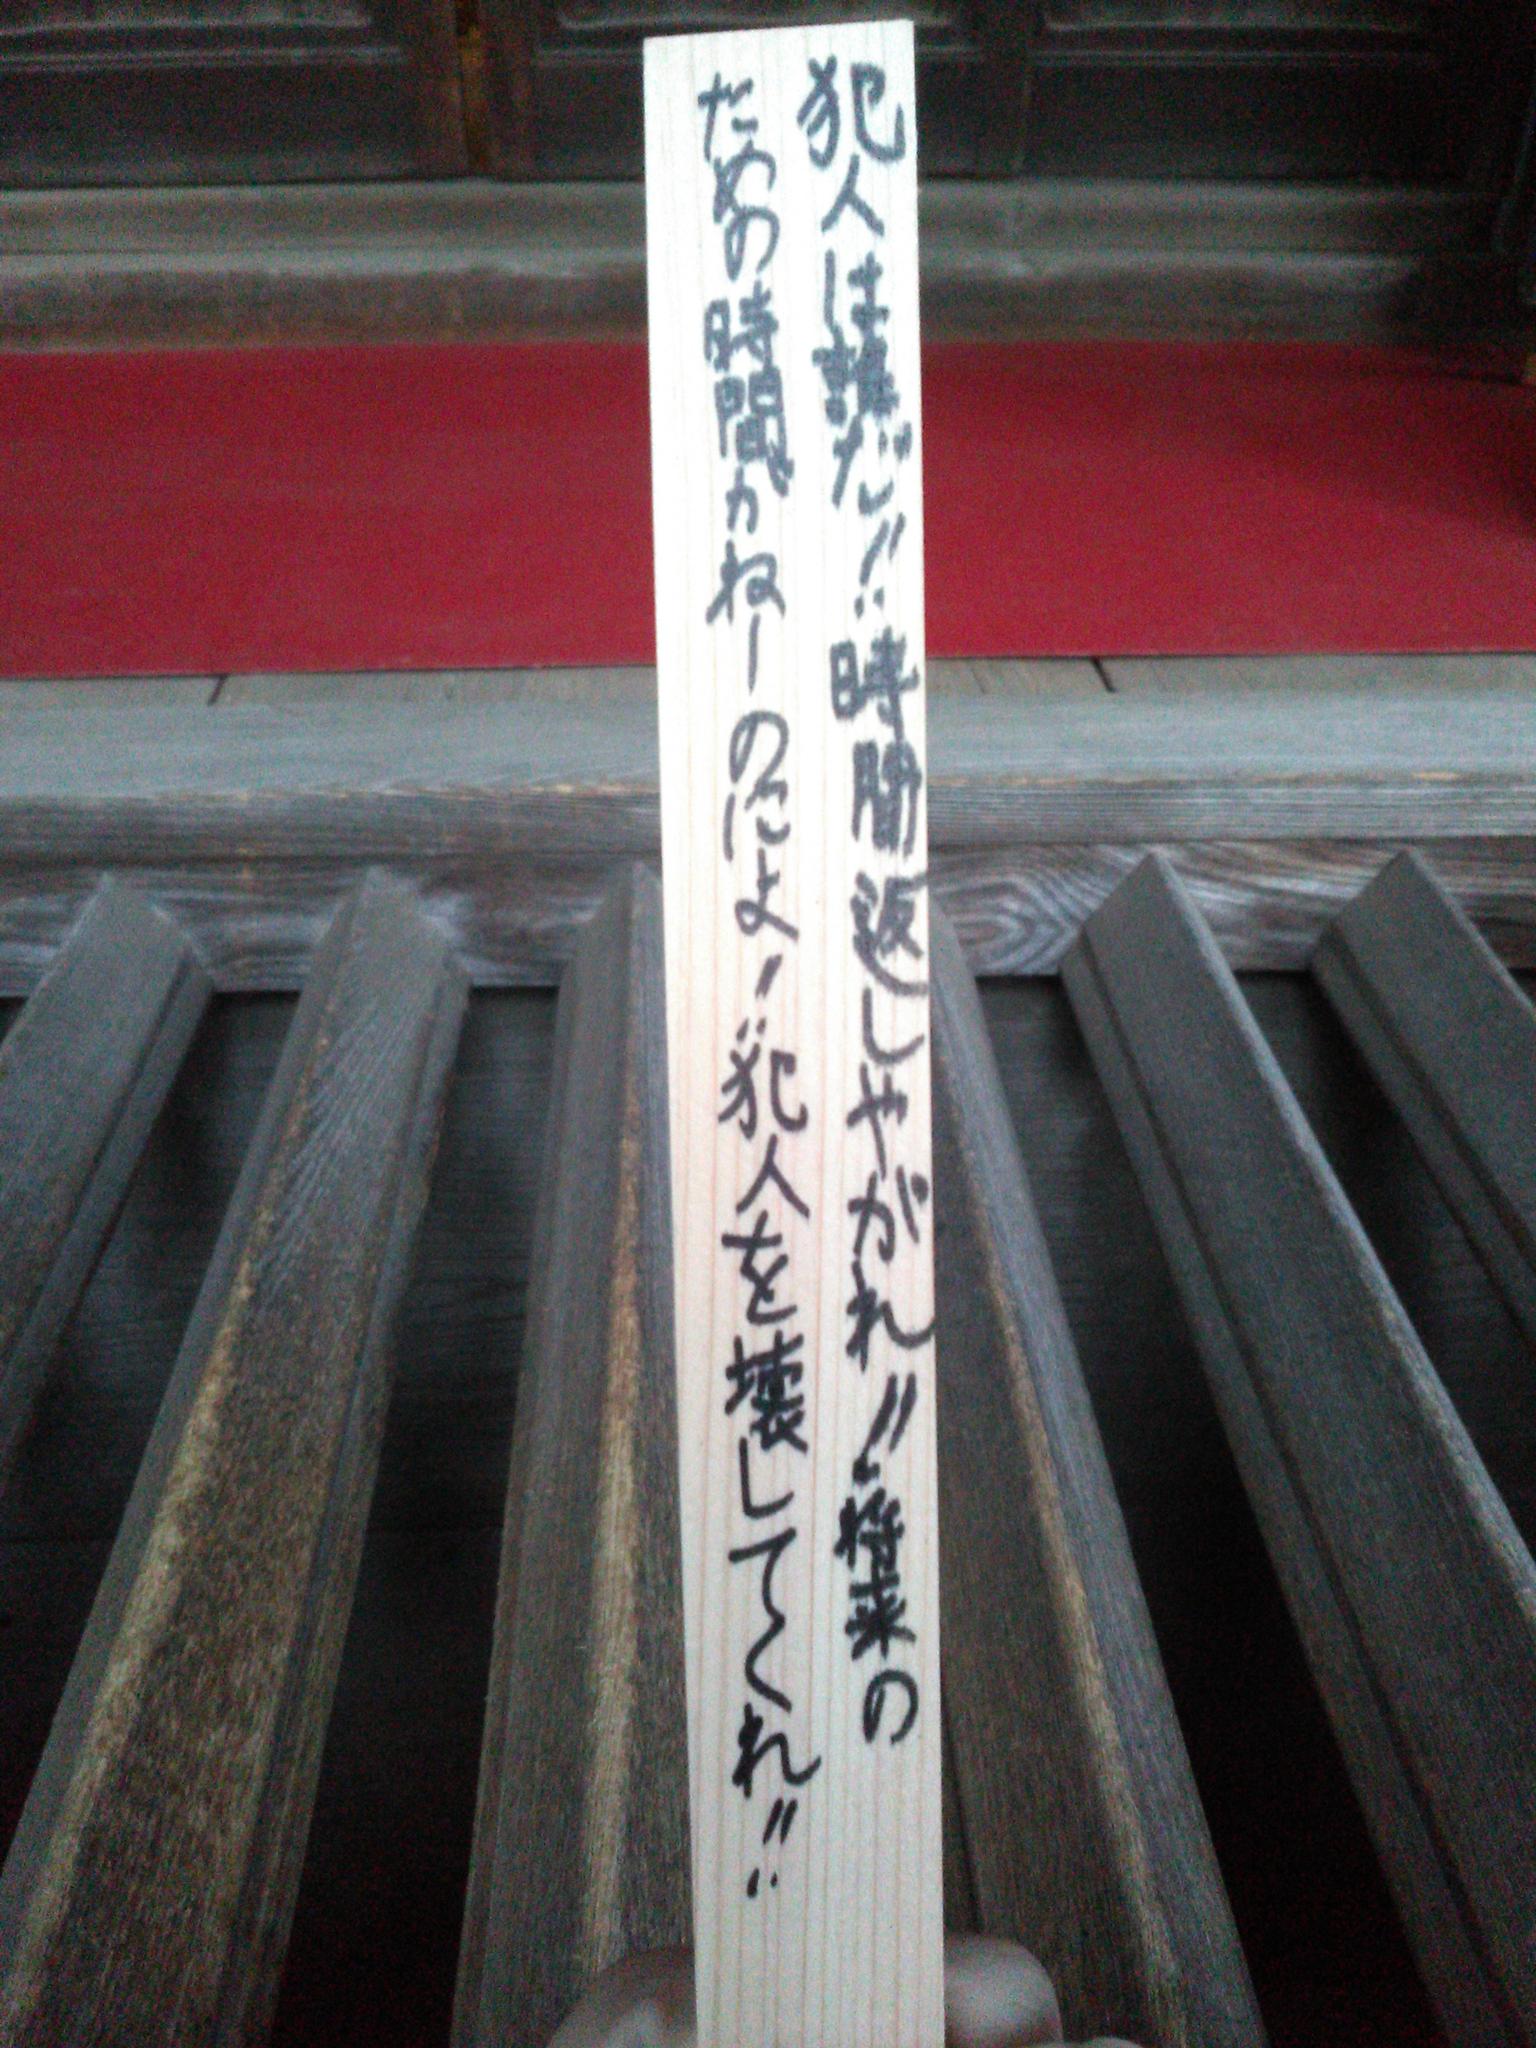 犯人は誰だ!!時間返しやがれ!!将来の
ための時間がねーのによ!!犯人を壊してくれ!!